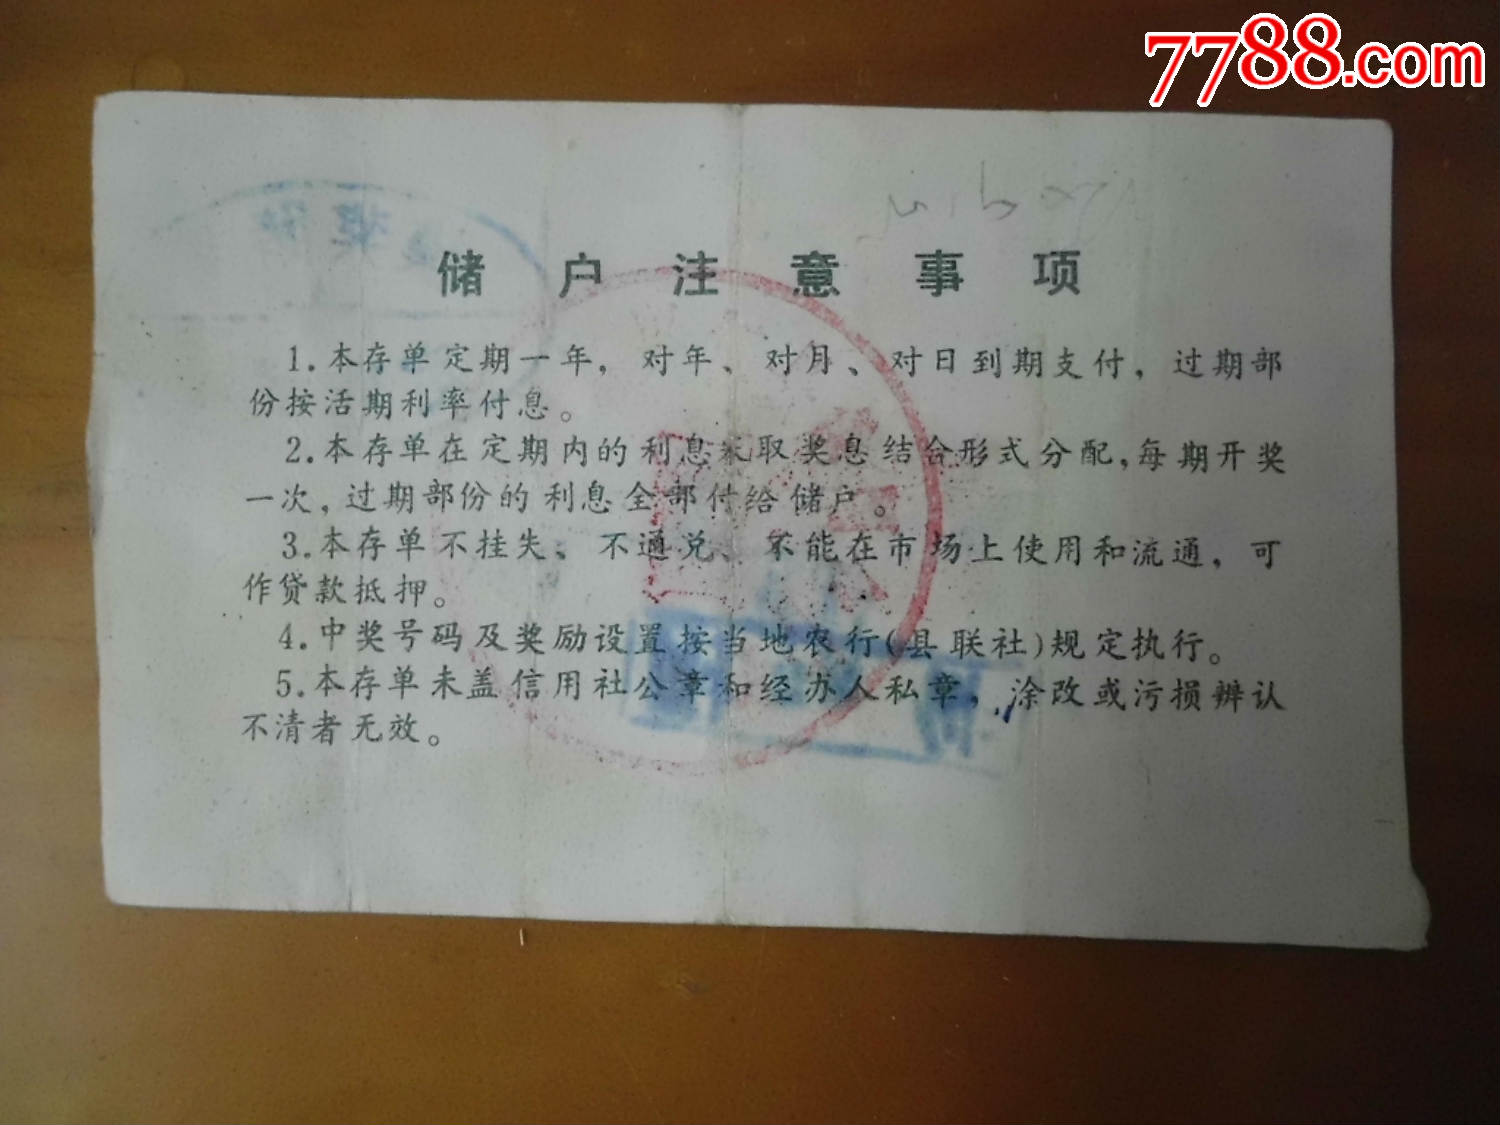 7788.com
储户注意事项
1.本存单定期一年，对年、对月、对日到期支付，过期部
份按活期利率付息。
2.本存单在定期内的利息采取奖息结合形式分配，每期开奖
一次，过期部份的利息全部付给储户。
3.本存单不挂失、不通兑、不能在市场上使用和流通，可
作贷款抵押。
4.中奖号码及奖励设置按当地农行(县联社)规定执行。
5.本存单未盖信用社公章和经办人私章，涂改或污损辨认
不清者无效。